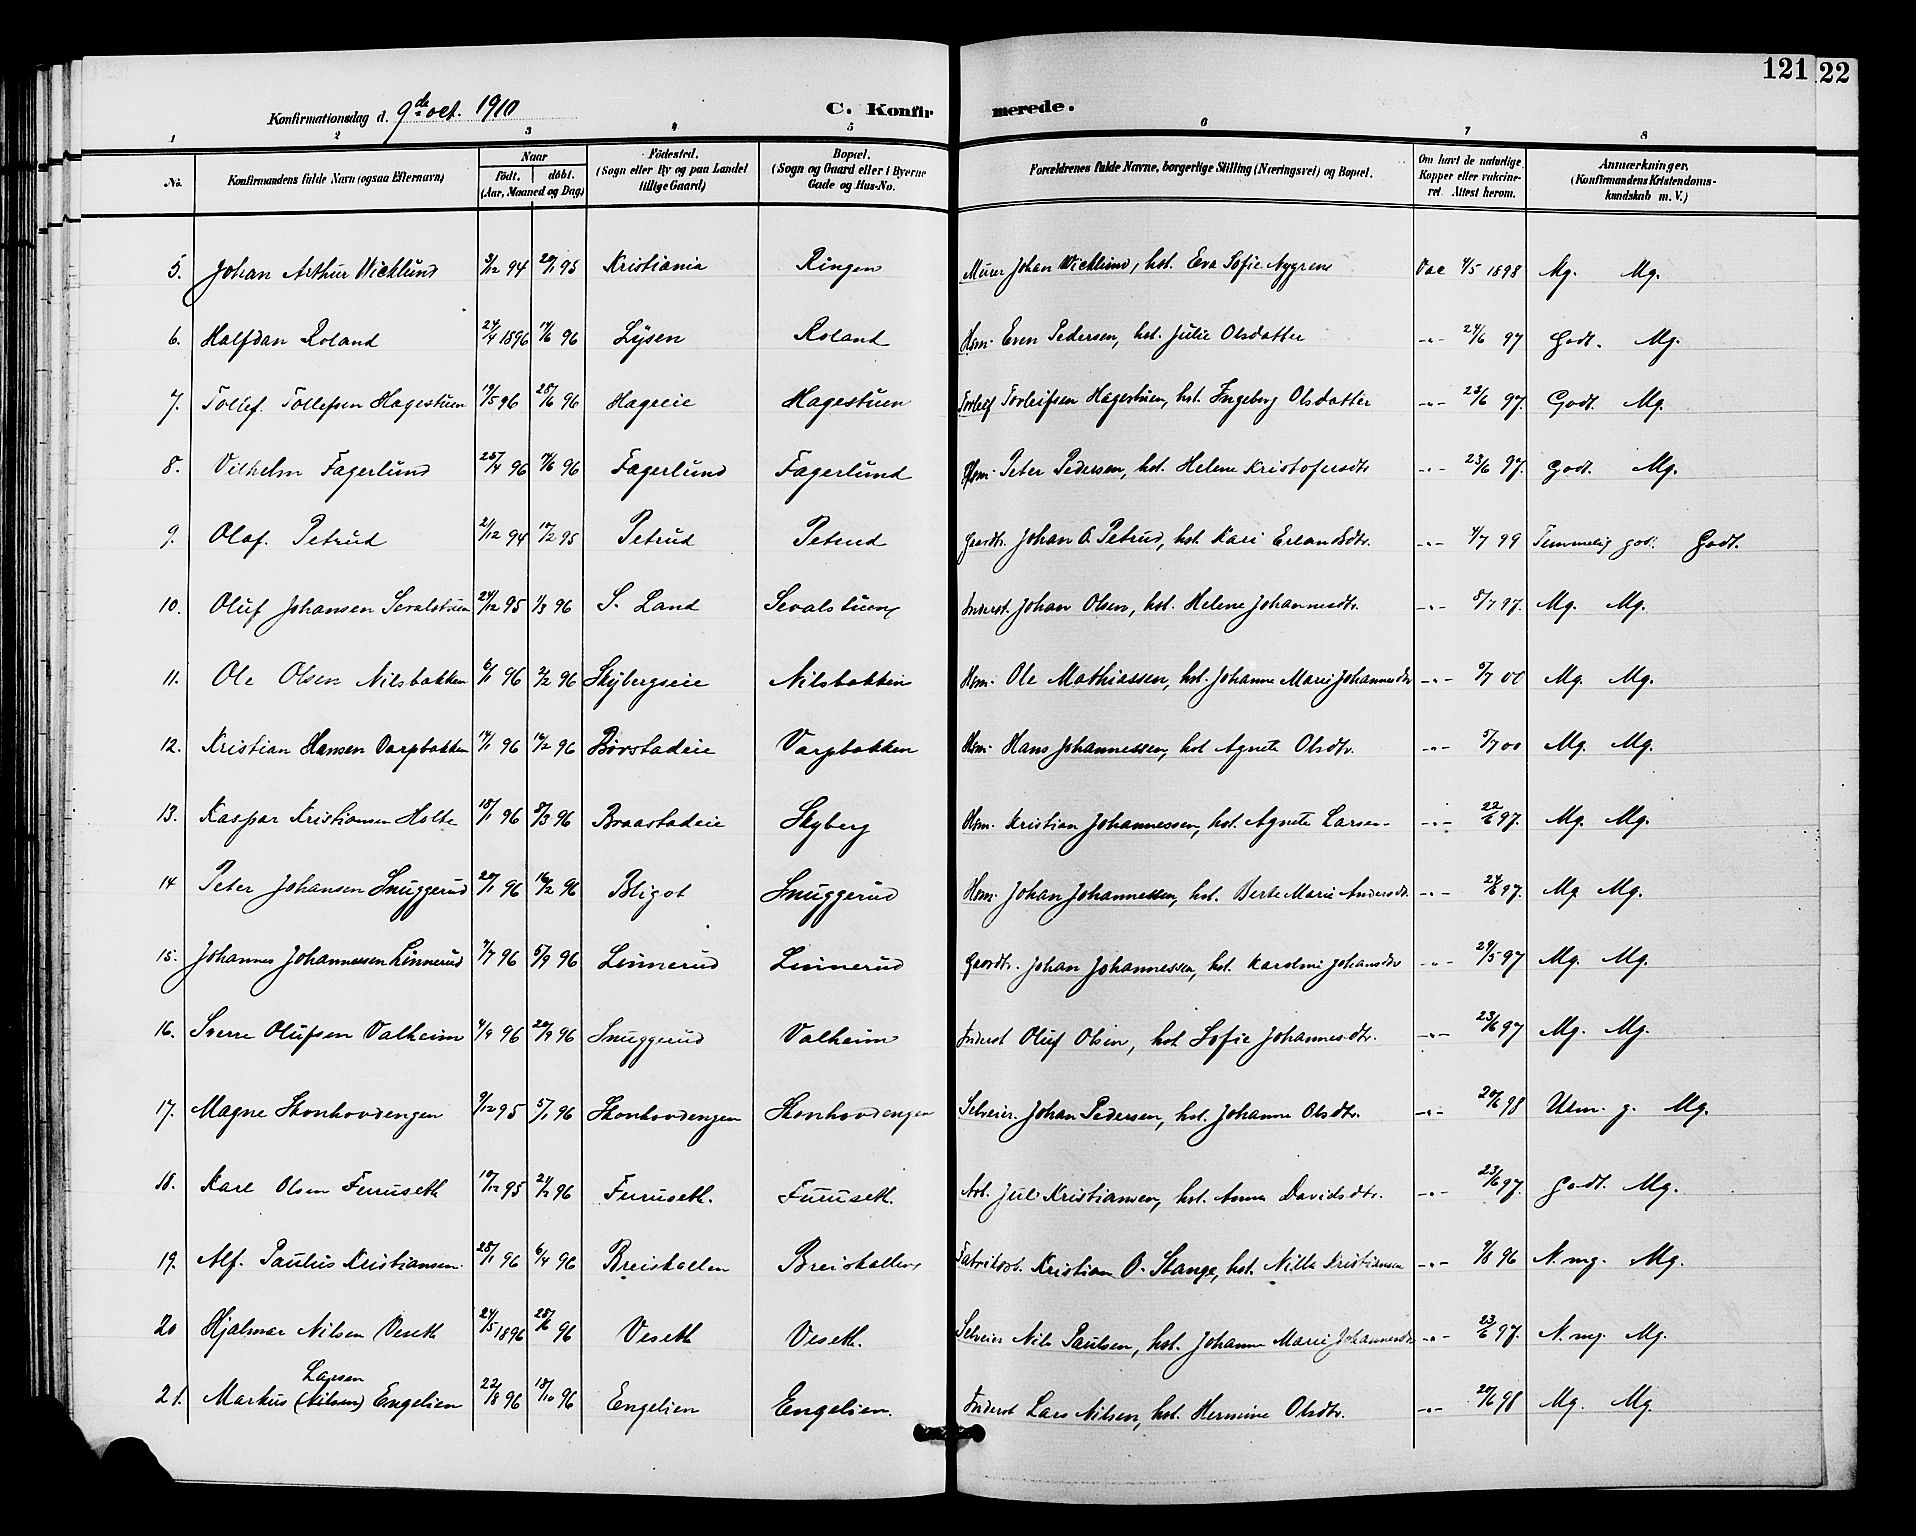 121 22
Konfirmationsdag d. 9de oct. 1910 C. Konfirmerede.
1 2 3 4 5 6 7 8
No. Konfirmandens fulde Navn (ogsaa Efternavn) Naar født. døbt. (Aar, Maaned og Dag) Födested. (Sogn eller By og paa Landet tillige Gaard) Bopæl. (Sogn og Gaard eller i Byerne Gade og Hus-No. Forældrenes fulde Navne, borgerlige Stilling (Næringsvei) og Bopæl. Om havt de naturlige Kopper eller vakcineret. Attest herom. Anmærkninger, (Konfirmandens Kristendomskundskab m. V.)
5. Johan Arthur Wicklund 3/12 94 20/1 95 Kristiania Ringen Murer Johan Wicklund, hst. Eva Sofie Nygren Vac 4/5 1898 Mg. Mg.
6. Halfdan Roland 24/4 1896 14/6 96 Lysen Roland Hsm. Even Pedersen, hst. Julie Olsdatter -"- 24/6 97 Godt. Mg.
7. Tollef Tollefsen Hagestuen 19/5 96 28/6 96 Hageeie Hagestuen Torleif Torleifsen Hagestuen, hst. Ingeborg Olsdatter -"- 23/6 97. Godt. Mg.
8. Vilhelm Fagerlund 25/4 96 7/6 96 Fagerlund Fagerlund Hsm. Peter Pedersen, hst. Helene Kristofersdtr -"- 23/6 97. Godt. Mg.
9. Olaf Petrud 2/12 94 17/2 95 Petrud Petrud Gaardbr. Johan O. Petrud, hst. Kari Erlandsdtr. -"- 4/7 99 Temmelig god. Godt.
10. Oluf Johansen Sevalstuen 24/12 95 1/3 96 S. Land Sevalstuen Inderst. Johan Olsen, hst. Helene Johannesdtr. -"- 8/7 97. Mg. Mg.
11. Ole Olsen Nilsbakken 6/1 96 2/2 96 Skybergseie Nilsbakken Hsm. Ole Mathiassen, hst. Johanne Marie Johannesdtr -"- 5/7 00 Mg. Mg.
12. Kristian Hansen Varpbakken 14/1 96 16/2 96 Børstadeie Varpbakken Hsm. Hans Johannessen, hst Agnete Olsdtr. -"- 5/7 00 Mg. Mg.
13. Kaspar Kristiansen Holte 18/1 96 8/3 96 Braastadeie Skyberg Hsm. Kristian Johannessen, hst. Agnete Larsen -"- 22/6 97. Mg. Mg.
14 Peter Johansen Snuggerud 20/1 96 16/2 96 Bligot Snuggerud Hsm. Johan Johannessen, hst. Berte Marie Andersdtr. -"- 24/6 97. Mg Mg.
15. Johannes Johannessen Linnerud 4/7 96 5/9 96 Linnerud Linnerud Gaardbr. Johan Johannessen, hst. Karoline Johansdtr -"- 29/5 97 Mg. Mg.
16. Sverre Olufsen Valheim 4/9 96 20/9 96 Snuggerud Valheim Inderst Oluf Olsen, hst Sofie Johannesdtr. -"- 23/6 97 Mg. Mg.
17. Magne Skonhovdengen 9/12 95 5/1 96 Skonhovdengen Skonhovdengen Selveier. Johan Pedersen, hst. Johanne Olsdtr. -"- 20/6 98 Uem. g. Mg.
18. Karl Olsen Furuseth 10/12 95 24/2 96 Furuseth. Furuseth. Arb. Juli Kristiansen, hst. Anna Davidsdtr. -"- 23/6 97. Godt. Mg.
19. Alf. Paulus Kristiansen. 28/1 96 6/4 96 Breiskallen Breiskallen Fabrikarb. Kristian O. Stange, hst. Nilla Kristiansen -"- 9/8 96 N. mg. Mg.
20 Hjalmar Nilsen Veseth 24/5 1896 28/6 96 Veseth Veseth. Selveier Nils Paulsen, hst. Johanne Marie Johannesdtr -"- 23/6 97. N. mg. Mg.
Larsen
21. Markus (Nilsen) Engelien 22/8 96 18/10 96 Engelien Engelien. Inderst Lars Nilsen, hst. Hermine Olsdtr. -"- 20/6 98 Mg. Mg.